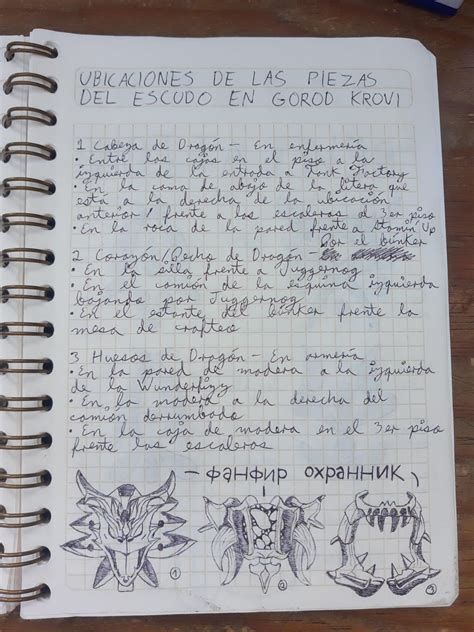 UBICACIONES DE LAS PIEZAS
DEL ESCUDO EN GOROD KROVI
1 Cabeza de Dragón – En enfermería
• Entre las cajas en el piso a la
izquierda de la entrada a Tank Factory
• En la cama de abajo de la litera que
está a la derecha de la ubicación
anterior / frente a las escaleras al 3er piso
• En la roca de la pared frente a Stamin Up
2 Corazón/Pecho de Dragón – Por el búnker
• En la silla frente a Juggernog
• En el camión de la esquina izquierda
bajando por Juggernog
• En el estante del búnker frente la
mesa de crafteo
3 Huesos de Dragón – En armería
• En la pared de madera a la izquierda
de la Wunderfizz
• En la madera a la derecha del
camión derrumbado
• En la caja de madera en el 3er piso
frente las escaleras
– фанфир охранник
1
2
3